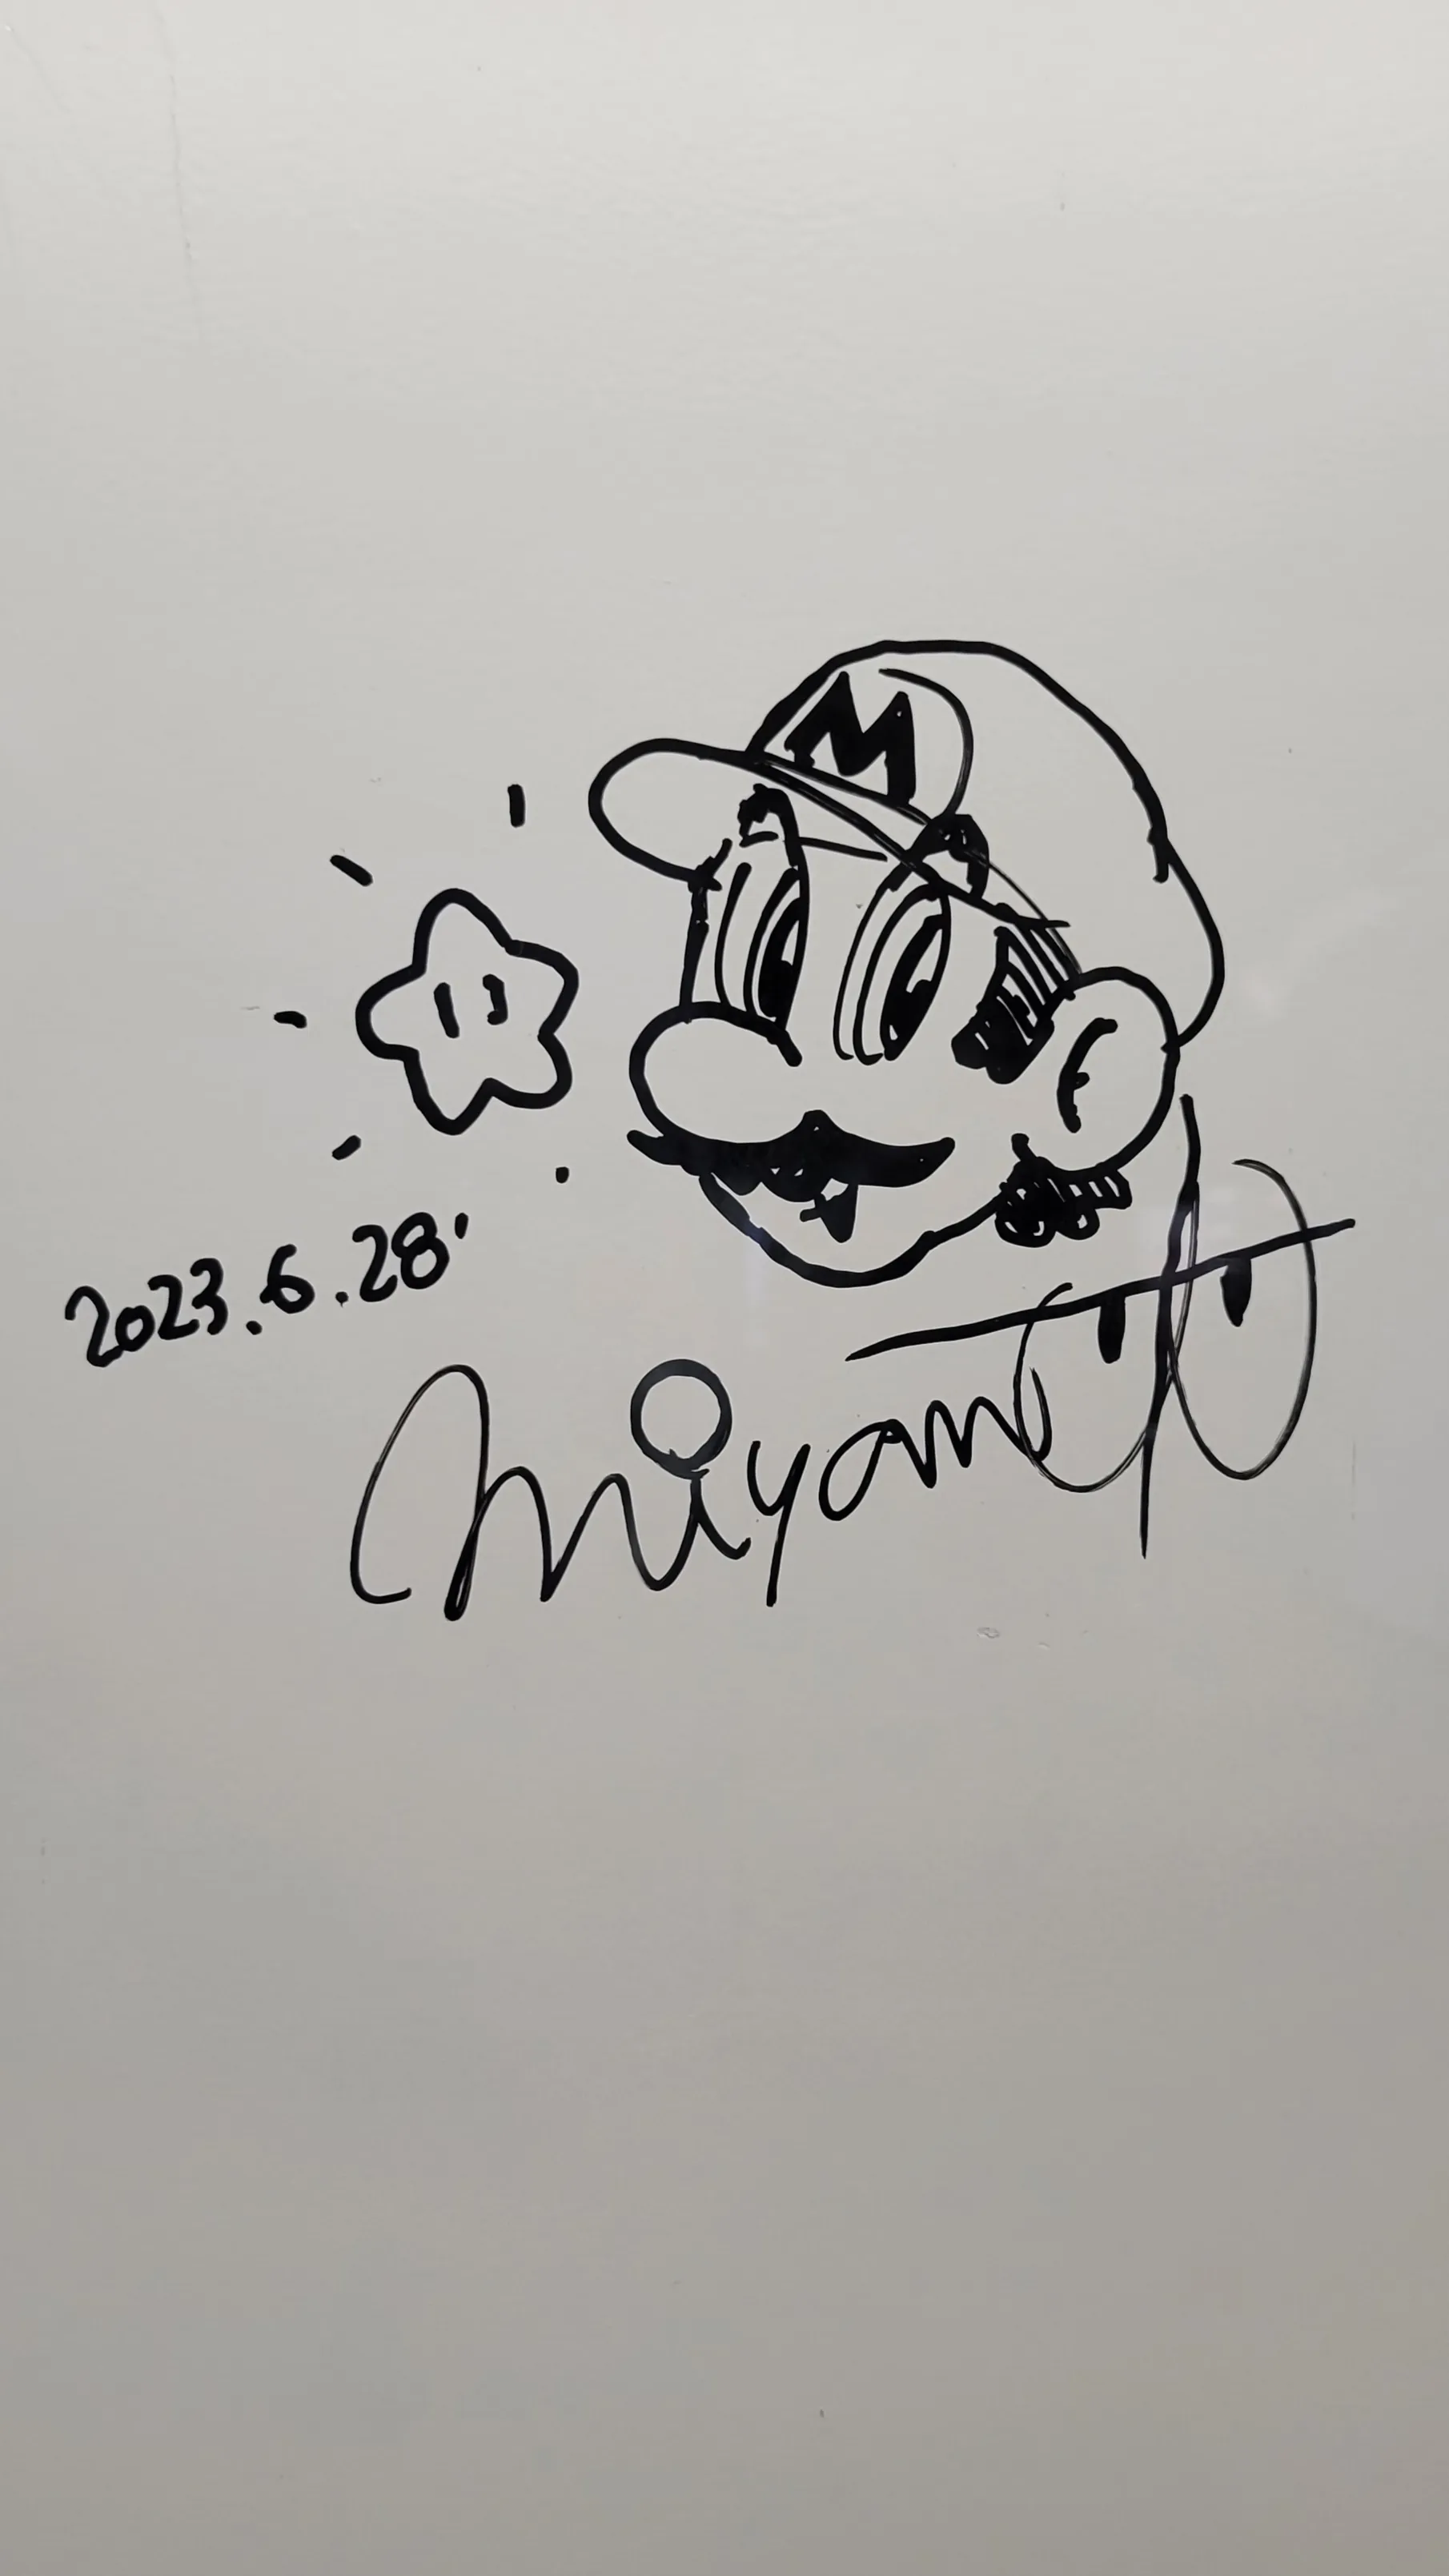 M
2023.6.28
Miyamoto